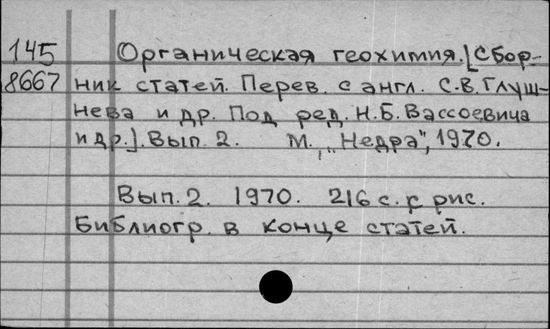 145 Органическая геохимия. [Сбор-
8667 ник статей. Перев. с англ. С.В. Глуш-
нева и др. Под ред. Н.Б. Вассоевича
и др.]. Вып. 2. М., "Недра", 1970.
Вып. 2. 1970. 216 с. с рис.
Библиогр. в конце статей.